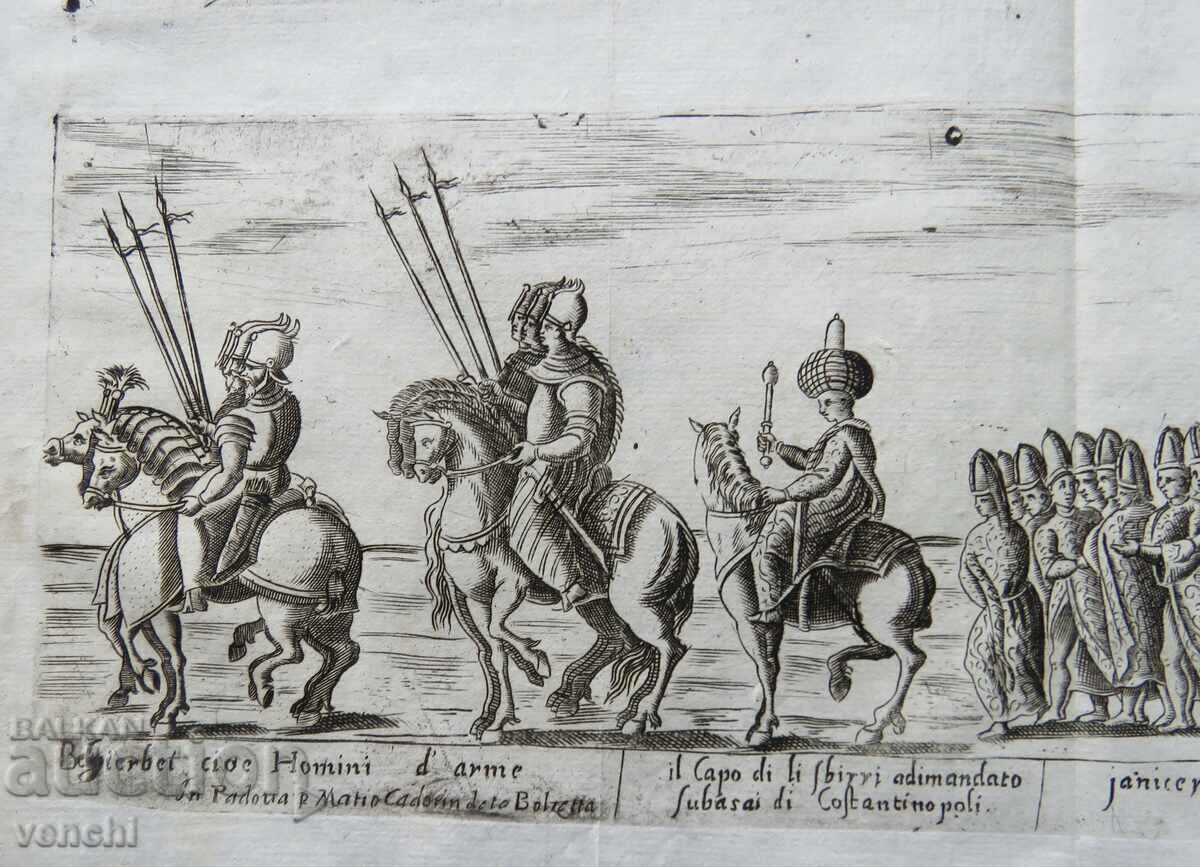 Beglierbet cioe Homini d'arme
In Padoua p Matio Cadorin deto Bolzetta
il Capo di li sbirri adimandato
subasai di Costantinopoli.
janicer
BALKAN
auction
venchi